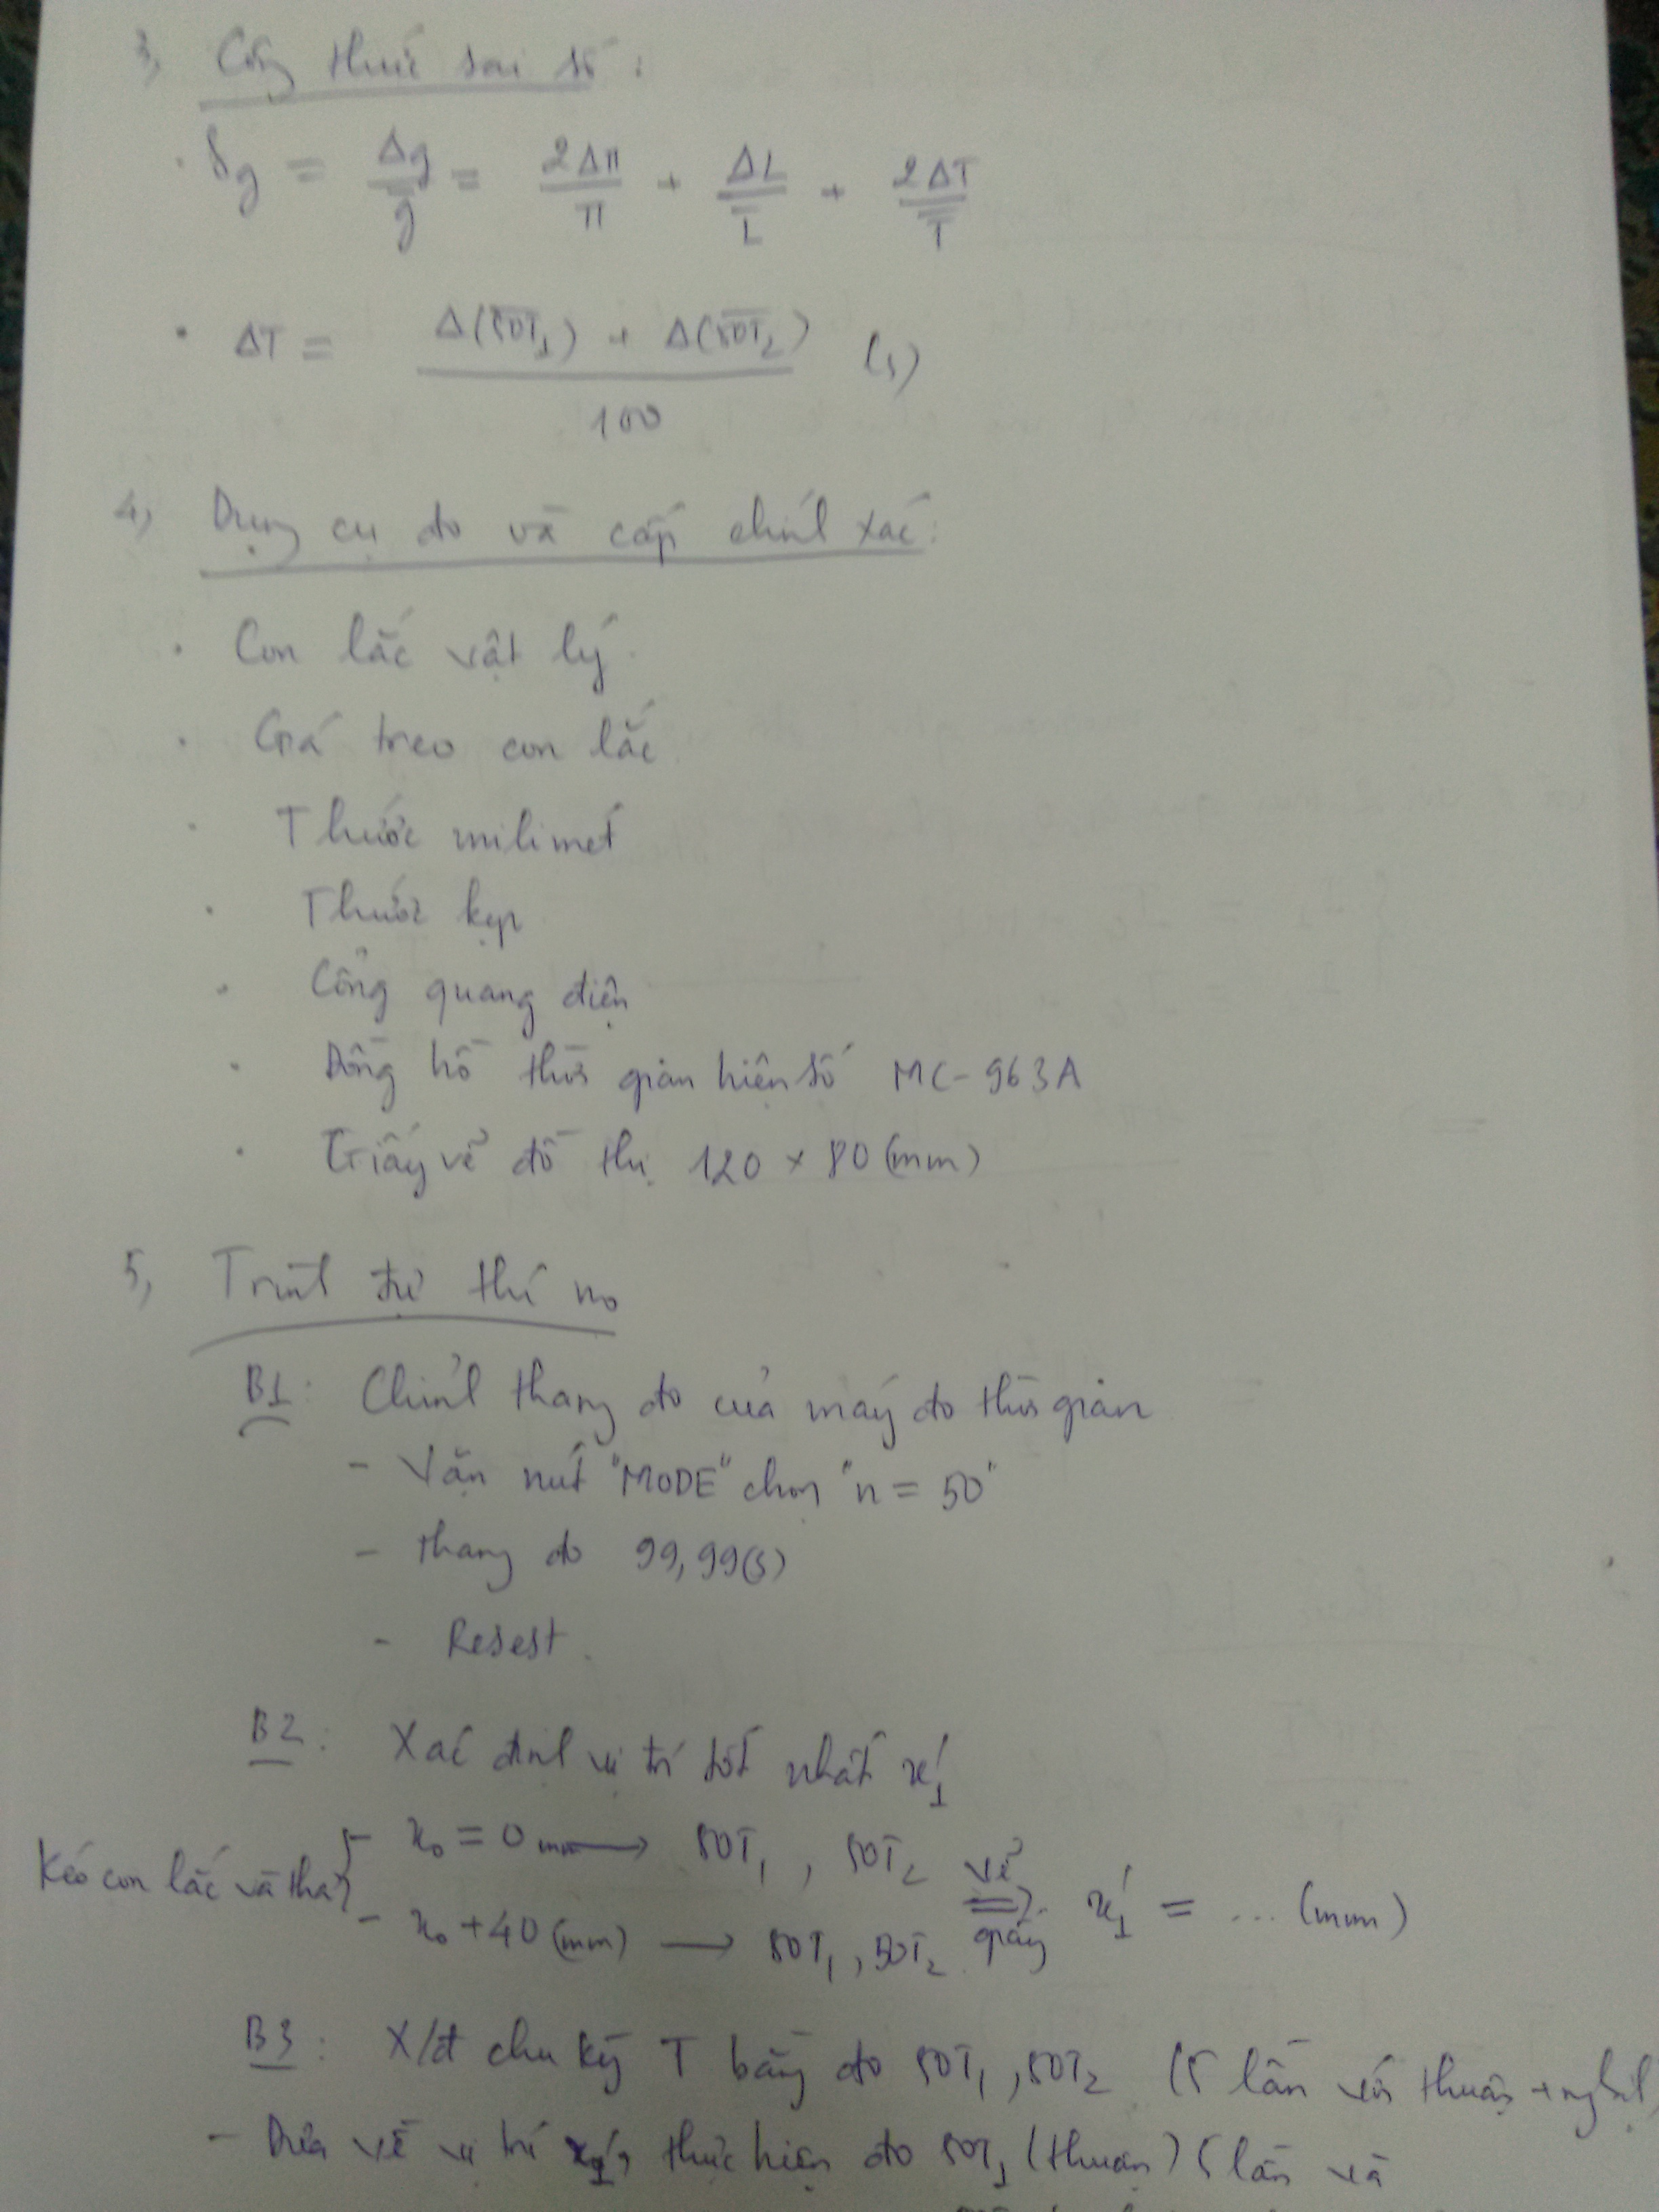 3, Công thức sai số :
. δg = Δg/g̅ = 2Δπ/π + ΔL/L̅ + 2ΔT/T̅
. ΔT = (Δ(50T₁) + Δ(50T₂))/100 (s)
4, Dụng cụ đo và cấp chính xác :
. Con lắc vật lý.
. Giá treo con lắc
. Thước milimet
. Thước kẹp
. Cổng quang điện
. Đồng hồ thời gian hiện số MC-963A
. Giấy vẽ đồ thị 120 x 80 (mm)
5, Trình tự thí no
B1 : Chỉnh thang đo của máy đo thời gian
- Vặn nút "MODE" chọn "n = 50"
- thang đo 99,99(s)
- Resest.
B2 : Xác định vị trí tốt nhất x'₁
Kéo con lắc và thả
- x₀ = 0 mm → 50T₁ , 50T₂
- x₀ + 40 (mm) → 50T₁ , 50T₂
vẽ giấy ⇒ x'₁ = ... (mm)
B3 : X/đ chu kỳ T bằng đo 50T₁ , 50T₂ (5 lần với thuận + nghịch)
- Đưa về vị trí x'₁, thực hiện đo 50T₁ (thuận) 5 lần và